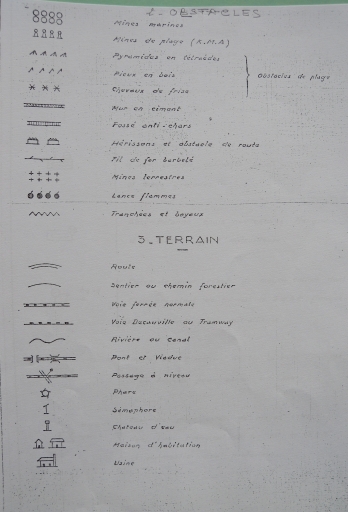 2 - OBSTACLES
Mines marines
Mines de plage (K.M.A)
Pyramides en tétraèdes
Pieux en bois
Obstacles de plage
Chevaux de frise
Mur en ciment
Fossé anti-chars
Hérissons et obstacle de route
Fil de fer barbelé
Mines terrestres
Lance flammes
Tranchées et boyaux
3.TERRAIN
Route
Sentier ou chemin forestier
Voie ferrée normale
Voie Decauville ou Tramway
Rivière ou canal
Pont et Viaduc
Passage à niveau
Phare
Sémaphore
Chateau d'eau
Maison d'habitation
Usine